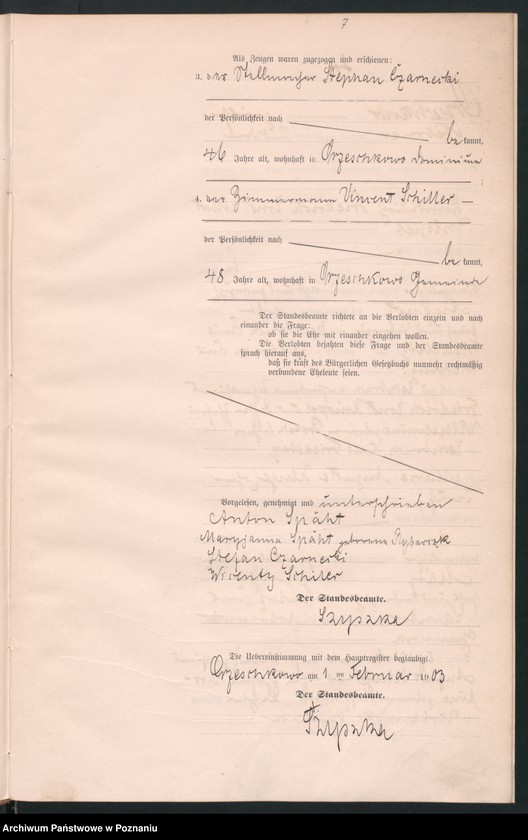 7
Als Zeugen waren zugezogen und erschienen:
3. der Stellmacher Stephan Czarnecki
der Persönlichkeit nach
be kannt,
46 Jahre alt, wohnhaft in Orzeschkowo Dominium
4. der Zimmermann Vincent Schiller
der Persönlichkeit nach
be kannt,
48 Jahre alt, wohnhaft in Orzeschkowo Gemeinde
Der Standesbeamte richtete an die Verlobten einzeln und nach
einander die Frage:
ob sie die Ehe mit einander eingehen wollen.
Die Verlobten bejahten diese Frage und der Standesbeamte
sprach hierauf aus,
daß sie kraft des Bürgerlichen Gesetzbuchs nunmehr rechtmäßig
verbundene Eheleute seien.
Vorgelesen, genehmigt und unterschrieben
Anton Späht
Maryjanna Späht geborene Rybarczyk
Stefan Czarnecki
Wicenty Schiler
Der Standesbeamte.
Szypzka
Die Uebereinstimmung mit dem Hauptregister beglaubigt.
Orzeschkowo am 1 ten Februar 1903
Der Standesbeamte.
Szypzka
Archiwum Państwowe w Poznaniu